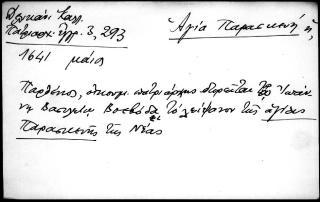 Δελικάνη Καλλ.
Πατριαρχ. ἔγγρ. 3, 293
Ἁγία Παρασκευή ἡ,
1641 μάιος
Παρθένιος, οἰκουμ. πατριάρχης δωρεῖται τῷ Ἰωάν-
νῃ Βασιλείῳ Βοεβόδᾳ τὸ λείψανον τῆς ἁγίας
Παρασκευῆς τῆς Νέας